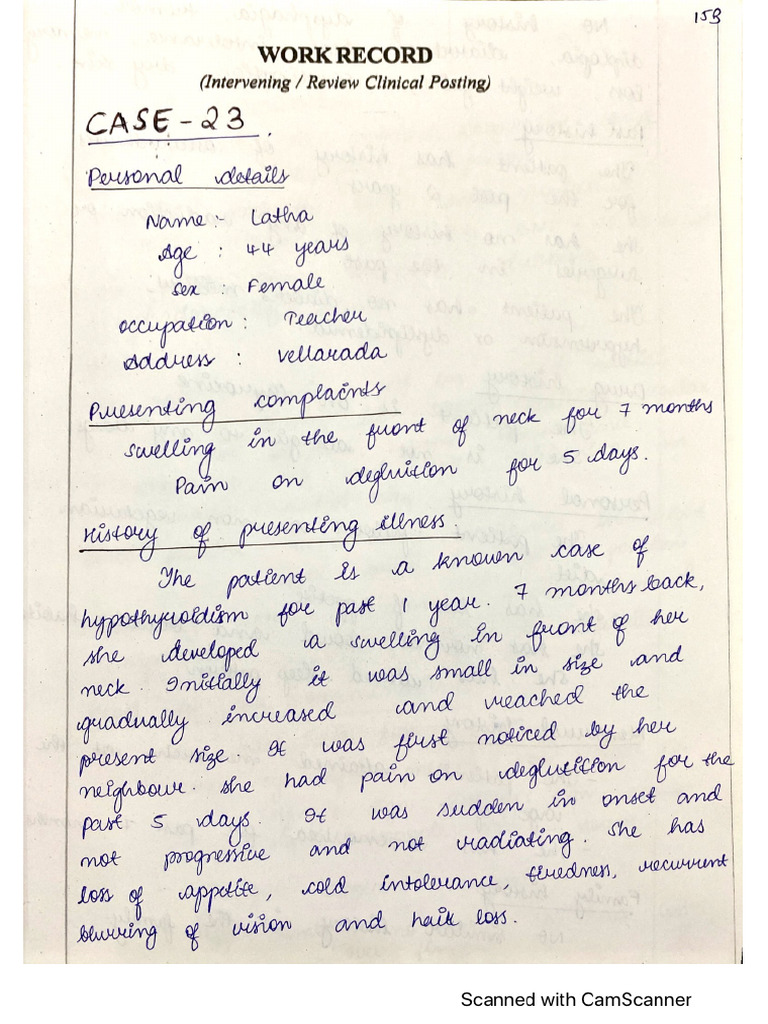 153
WORK RECORD
(Intervening / Review Clinical Posting)
CASE - 23.
Personal details
Name :- Latha
Age : 44 years
Sex : Female
Occupation : Teacher
Address : Vellarada
Presenting complaints
Swelling in the front of neck for 7 months
Pain on deglution for 5 days.
History of presenting illness.
The patient is a known case of
hypothyroidism for past 1 year. 7 months back,
she developed a swelling in front of her
neck. Initially it was small in size and
gradually increased and reached the
present size. It was first noticed by her
neighbour. She had pain on deglutition for the
past 5 days. It was sudden in onset and
not progressive and not radiating. She has
loss of appetite, cold intolerance, tiredness, recurrent
blurring of vision and hair loss.
Scanned with CamScanner